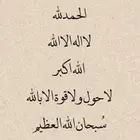 الحمدلله
لا اله الا الله
الله اكبر
لاحول ولا قوة الا بالله
سُبحان الله العظيم